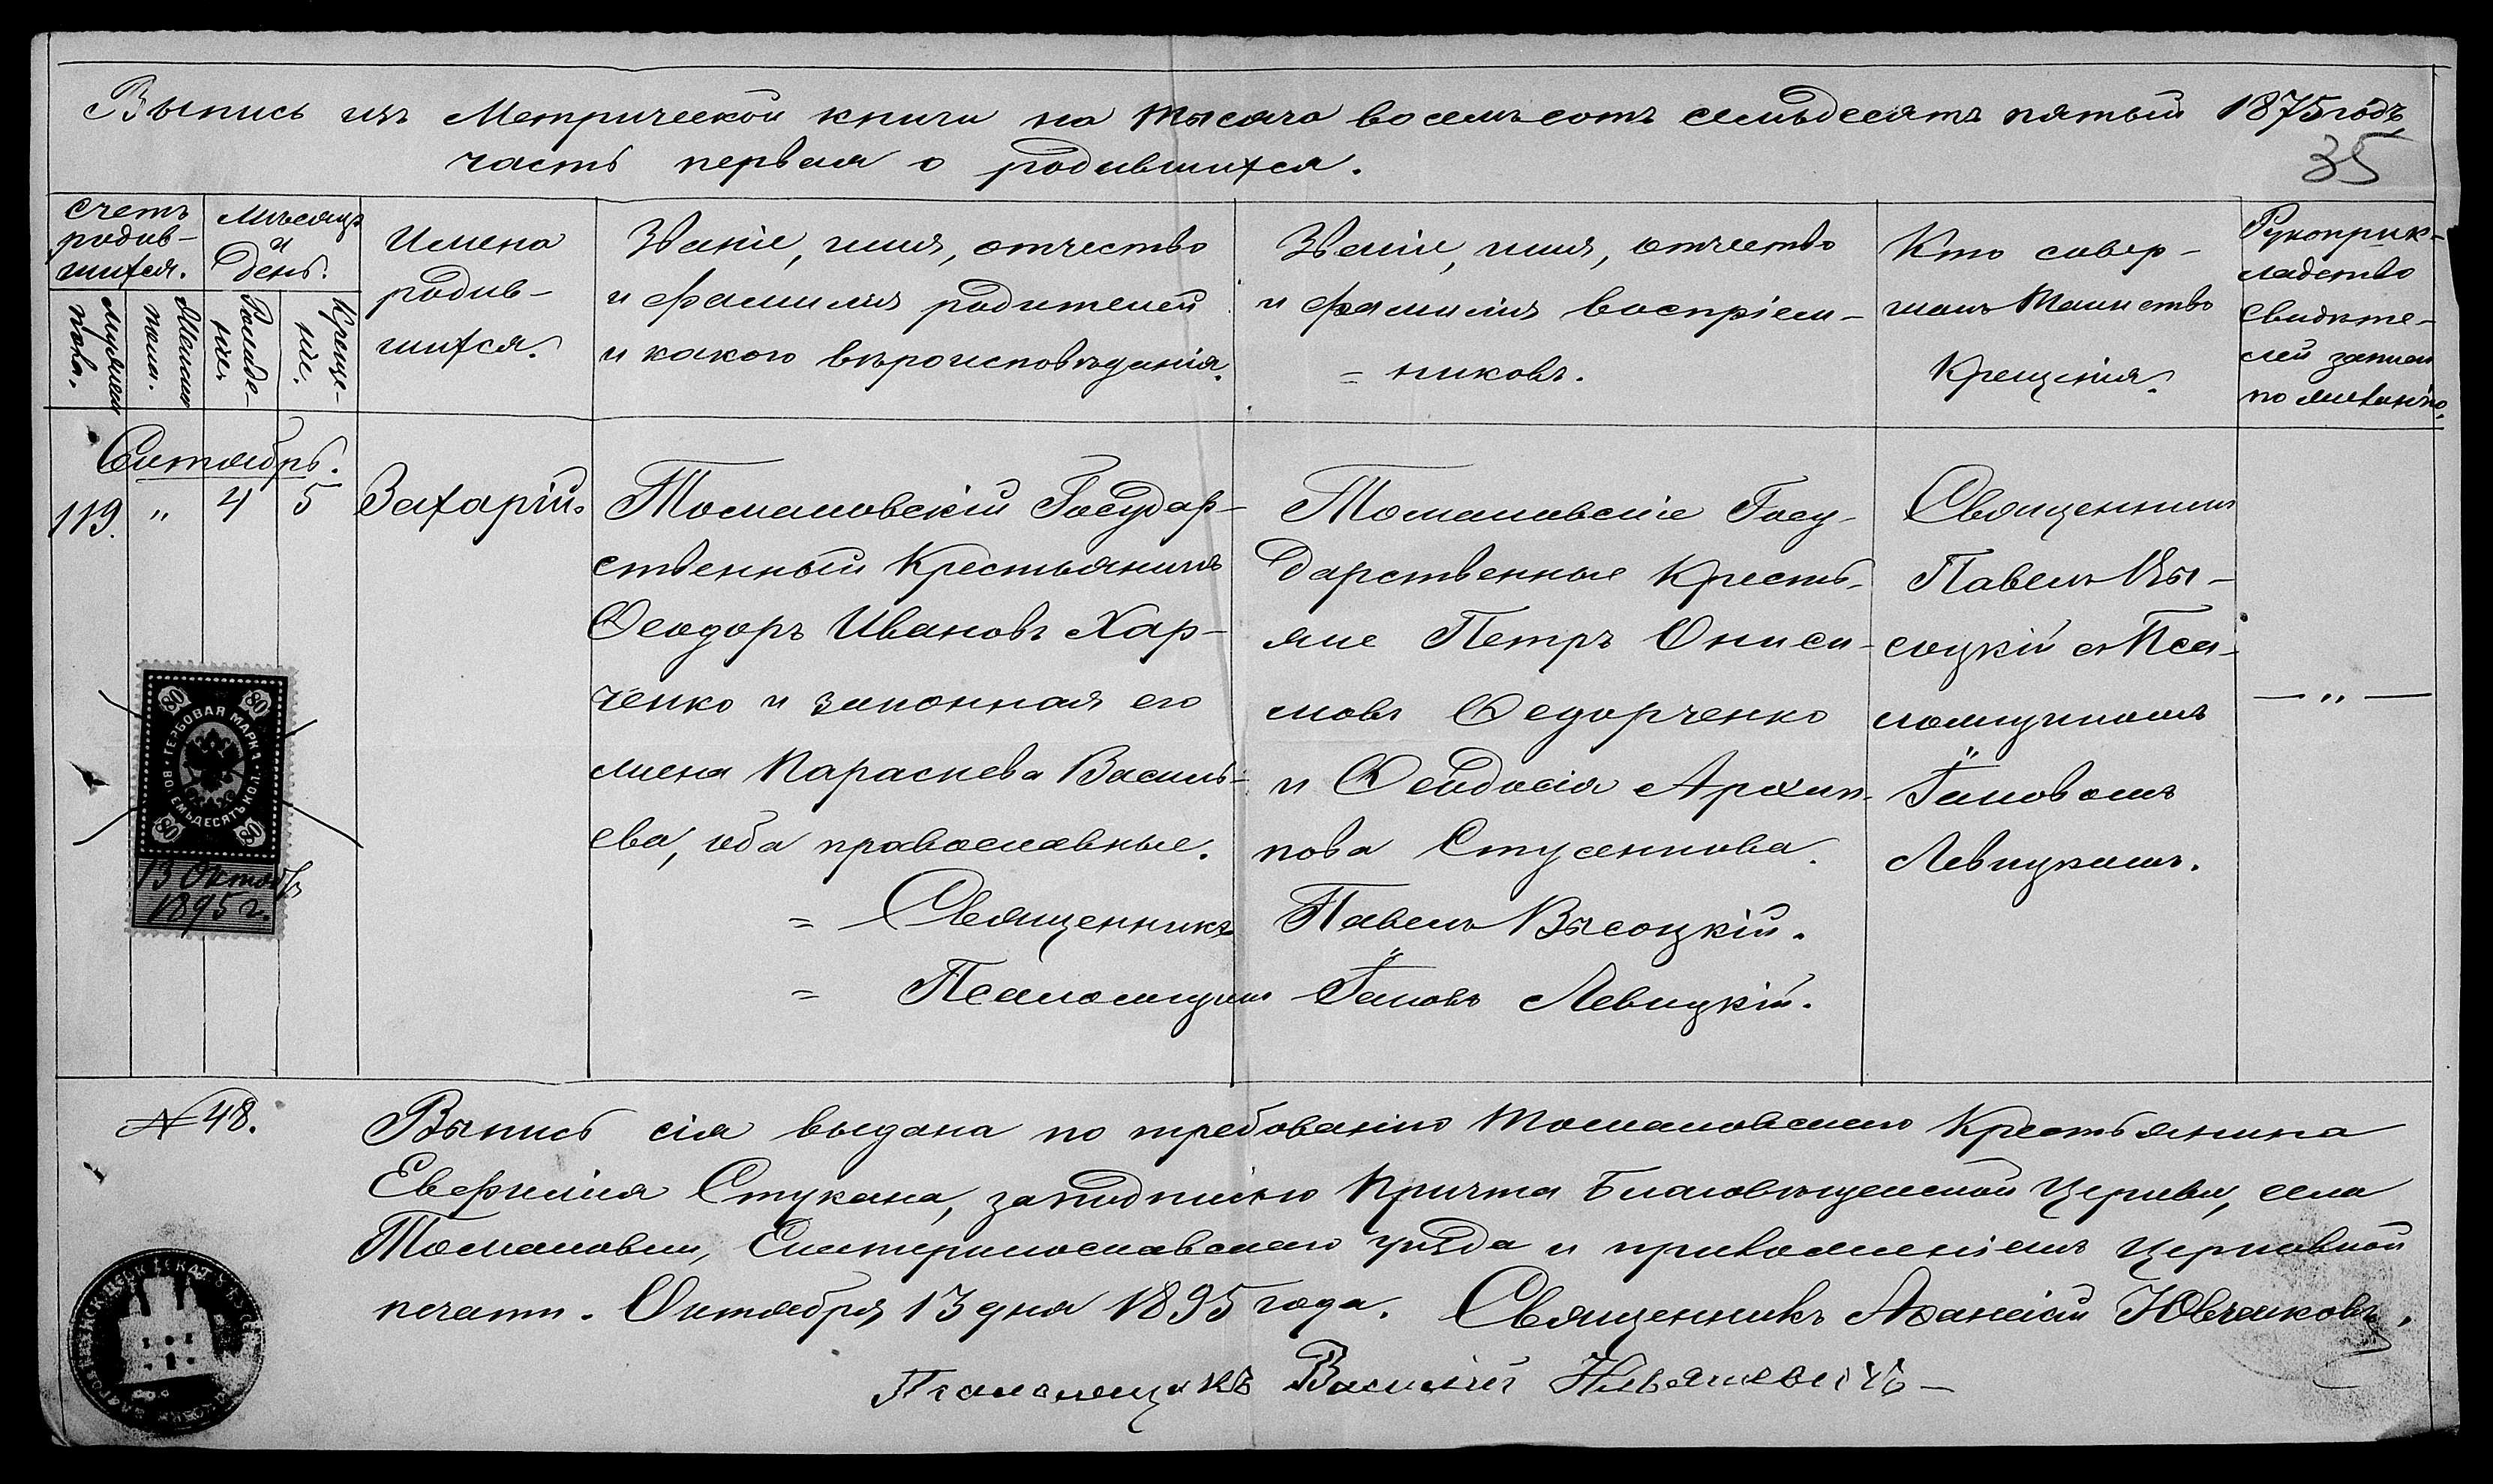 Выпись изъ Метрической книги на тысяча восемьсотъ семьдесятъ пятый 1875 годъ,
часть первая о родившихся.
35
Счетъ
родив-
шихся.
Мужеска
пола.
Женска
пола.
Мѣсяцъ
и
день.
Рожде-
нія.
Креще-
нія.
Имена
родив-
шихся.
Званіе, имя, отчество
и фамилія родителей
и какого вѣроисповѣданія.
Званіе, имя, отчество
и фамилія воспріем-
= никовъ.
Кто совер-
шалъ Таинство
Крещенія.
Рукоприк-
ладство
свидѣте-
лей записи
по желанію.
Сентябрь.
119. " 4 5
Захарій.
Томаковскій Государ-
ственный Крестьянинъ
Ѳеодоръ Ивановъ Хар-
ченко и законная его
жена Параскева Василь-
ева, оба православные.
Томаковскіе Госу-
дарственные Кресть-
яне Петръ Ониси-
мовъ Ѳедорченко
и Ѳеодосія Архип-
пова
Священникъ
Павелъ Вы-
соцкій съ Пса-
ломщикомъ
Іаковомъ
Левицкимъ.
— " —
= Священникъ Павелъ Высоцкій.
= Псаломщикъ Іаковъ Левицкій.
80 80
ГЕРБОВАЯ МАРКА
ВОСЕМЬДЕСЯТЪ КОП.
80 80
13 Октяб
1895 г.
№ 48.
Выпись сія выдана по требованію Томаковскаго Крестьянина
Евфимія Стукана, за подписью Причта Благовѣщенской Церкви, села
Томаковки, Екатеринославскаго уѣзда и приложеніемъ Церковной
печати. Октября 13 дня 1895 года. Священникъ Аѳанасій
Псаломщикъ Василій